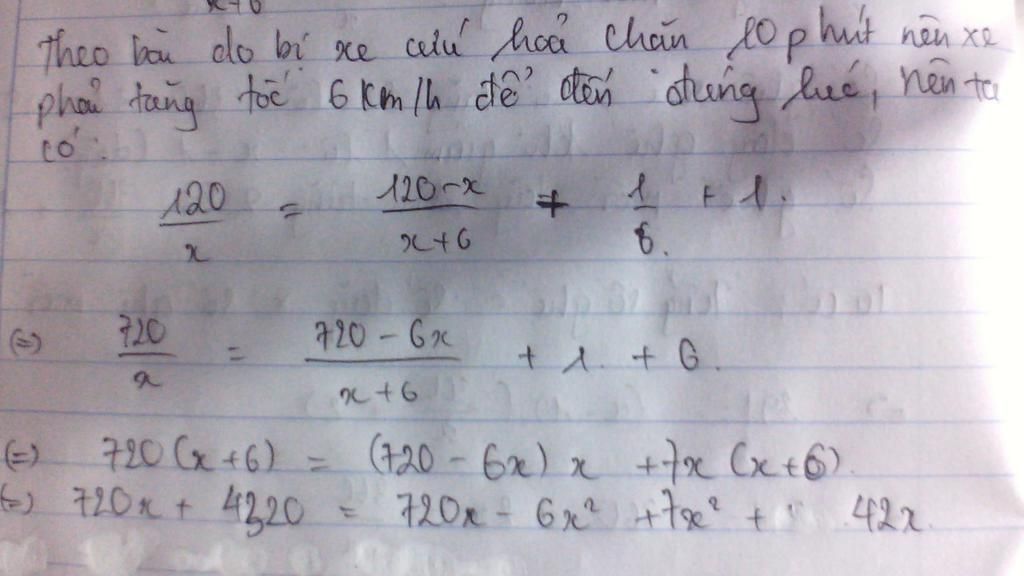 x+6
Theo bài do bị xe cứu hoả chắn 10 phút nên xe
phải tăng tốc 6 km/h để đến đúng lúc, nên ta
có:
120/x = (120-x)/(x+6) + 1/6 + 1.
(=) 720/x = (720-6x)/(x+6) + 1 + 6.
(=) 720(x+6) = (720-6x)x +7x(x+6).
(=) 720x + 4320 = 720x - 6x² +7x² + 42x.